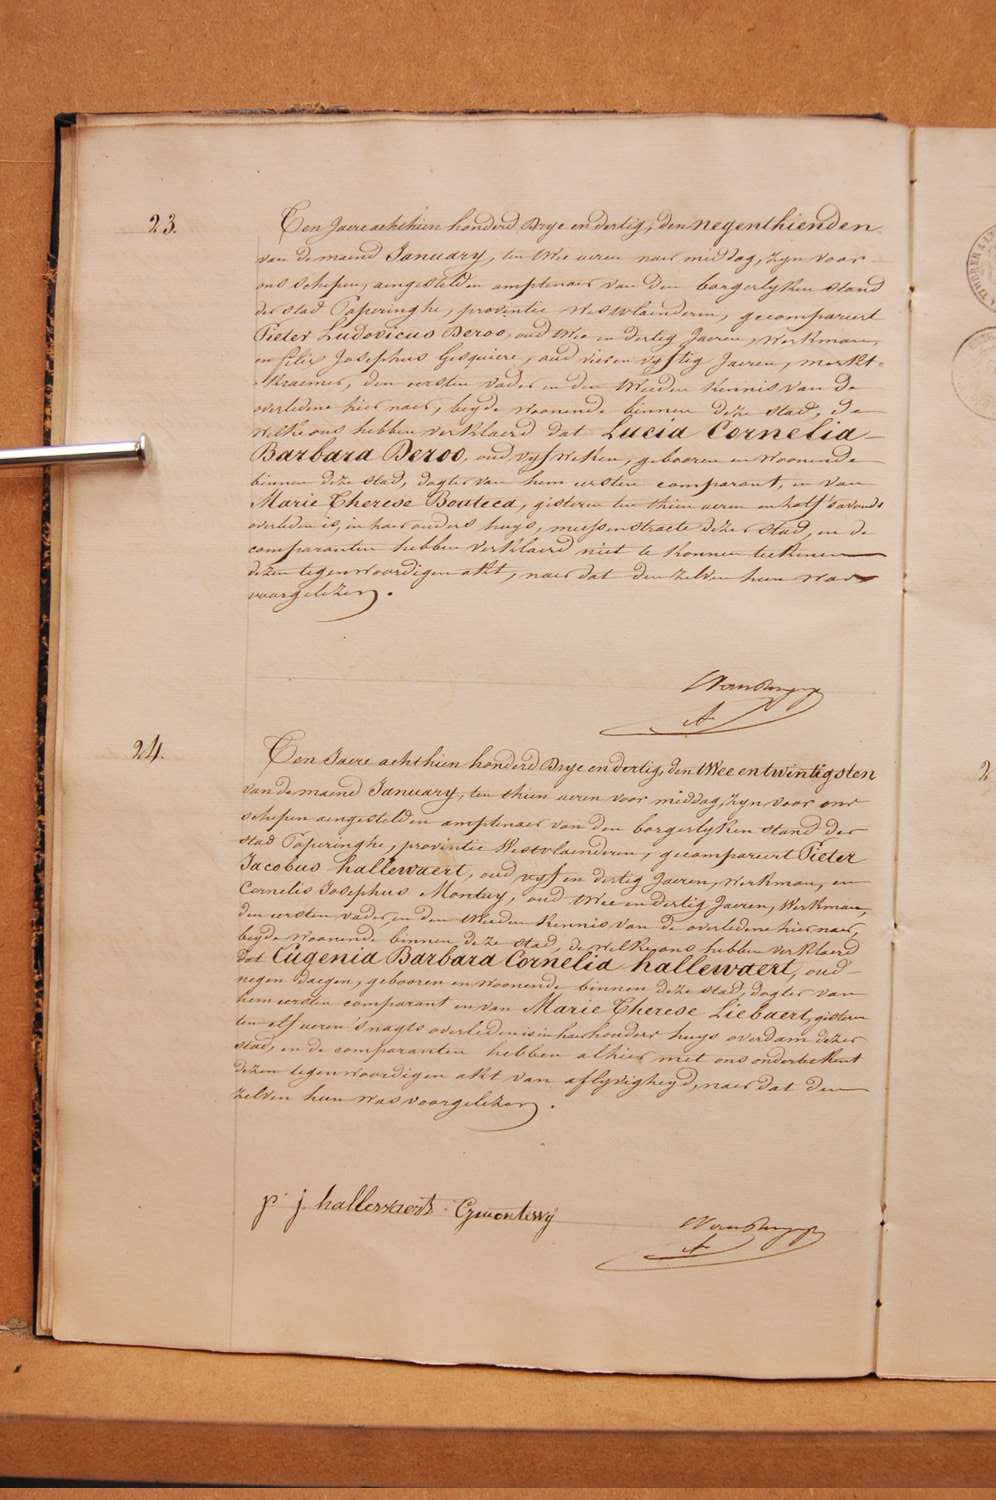 23.
Ten Jaere achthien honderd Drye en dertig, den negenthienden
van de maend January, ten twee ueren naer middag, zyn voor
ons schepen, aengestelden amptenaer van den borgerlyken stand
der stad Poperinghe, provintie Westvlaenderen, gecompareert
Pieter Ludovicus Deroo, oud twee en dertig Jaeren, werkman,
en felix Josephus Gesquiere, oud vier en vyftig Jaeren, merkt-
kraemer, den eersten vader en den tweeden kennis van de
overledene hier naer, beyde woonende binnen deze stad, de
welke ons hebben verklaerd dat Lucia Cornelia
Barbara Deroo, oud vyf weken, gebooren en woonende
binnen deze stad, dogter van hem eersten comparant, en van
Marie Therese Bouteca, gisteren ten thien ueren en half 's avonds
overleden is, in haer ouders huys, meessenstraete dezer stad, en de
comparanten hebben verklaerd niet te konnen teekenen
dezen tegenwoordigen akt, naer dat den zelven hun was
voorgelezen.
24.
Ten Jaere achthien honderd Drye en dertig, den twee en twintigsten
van de maend January, ten thien ueren voor middag, zyn voor ons
schepen aengestelden amptenaer van den borgerlyken stand der
stad Poperinghe, provintie Westvlaenderen, gecompareert Pieter
Jacobus hallewaert, oud vyf en dertig Jaeren, werkman, en
Cornelis Josephus Montuy, oud twee en dertig Jaeren, werkman,
den eersten vader, en den tweeden kennis van de overledene hier naer,
beyde woonende binnen deze stad, de welke ons hebben verklaerd
dat Eugenia Barbara Cornelia hallewaert, oud
negen daegen, gebooren en woonende binnen deze stad, dogter van
hem eersten comparant en van Marie Therese Liebaert, gisteren
ten elf ueren 's nagts overleden is in haer houders huys overdam dezer
stad, en de comparanten hebben alhier met ons onderteekent
dezen tegenwoordigen akt van aflyvigheyd, naer dat den
zelven hun was voorgelezen.
p j hallewaert
2